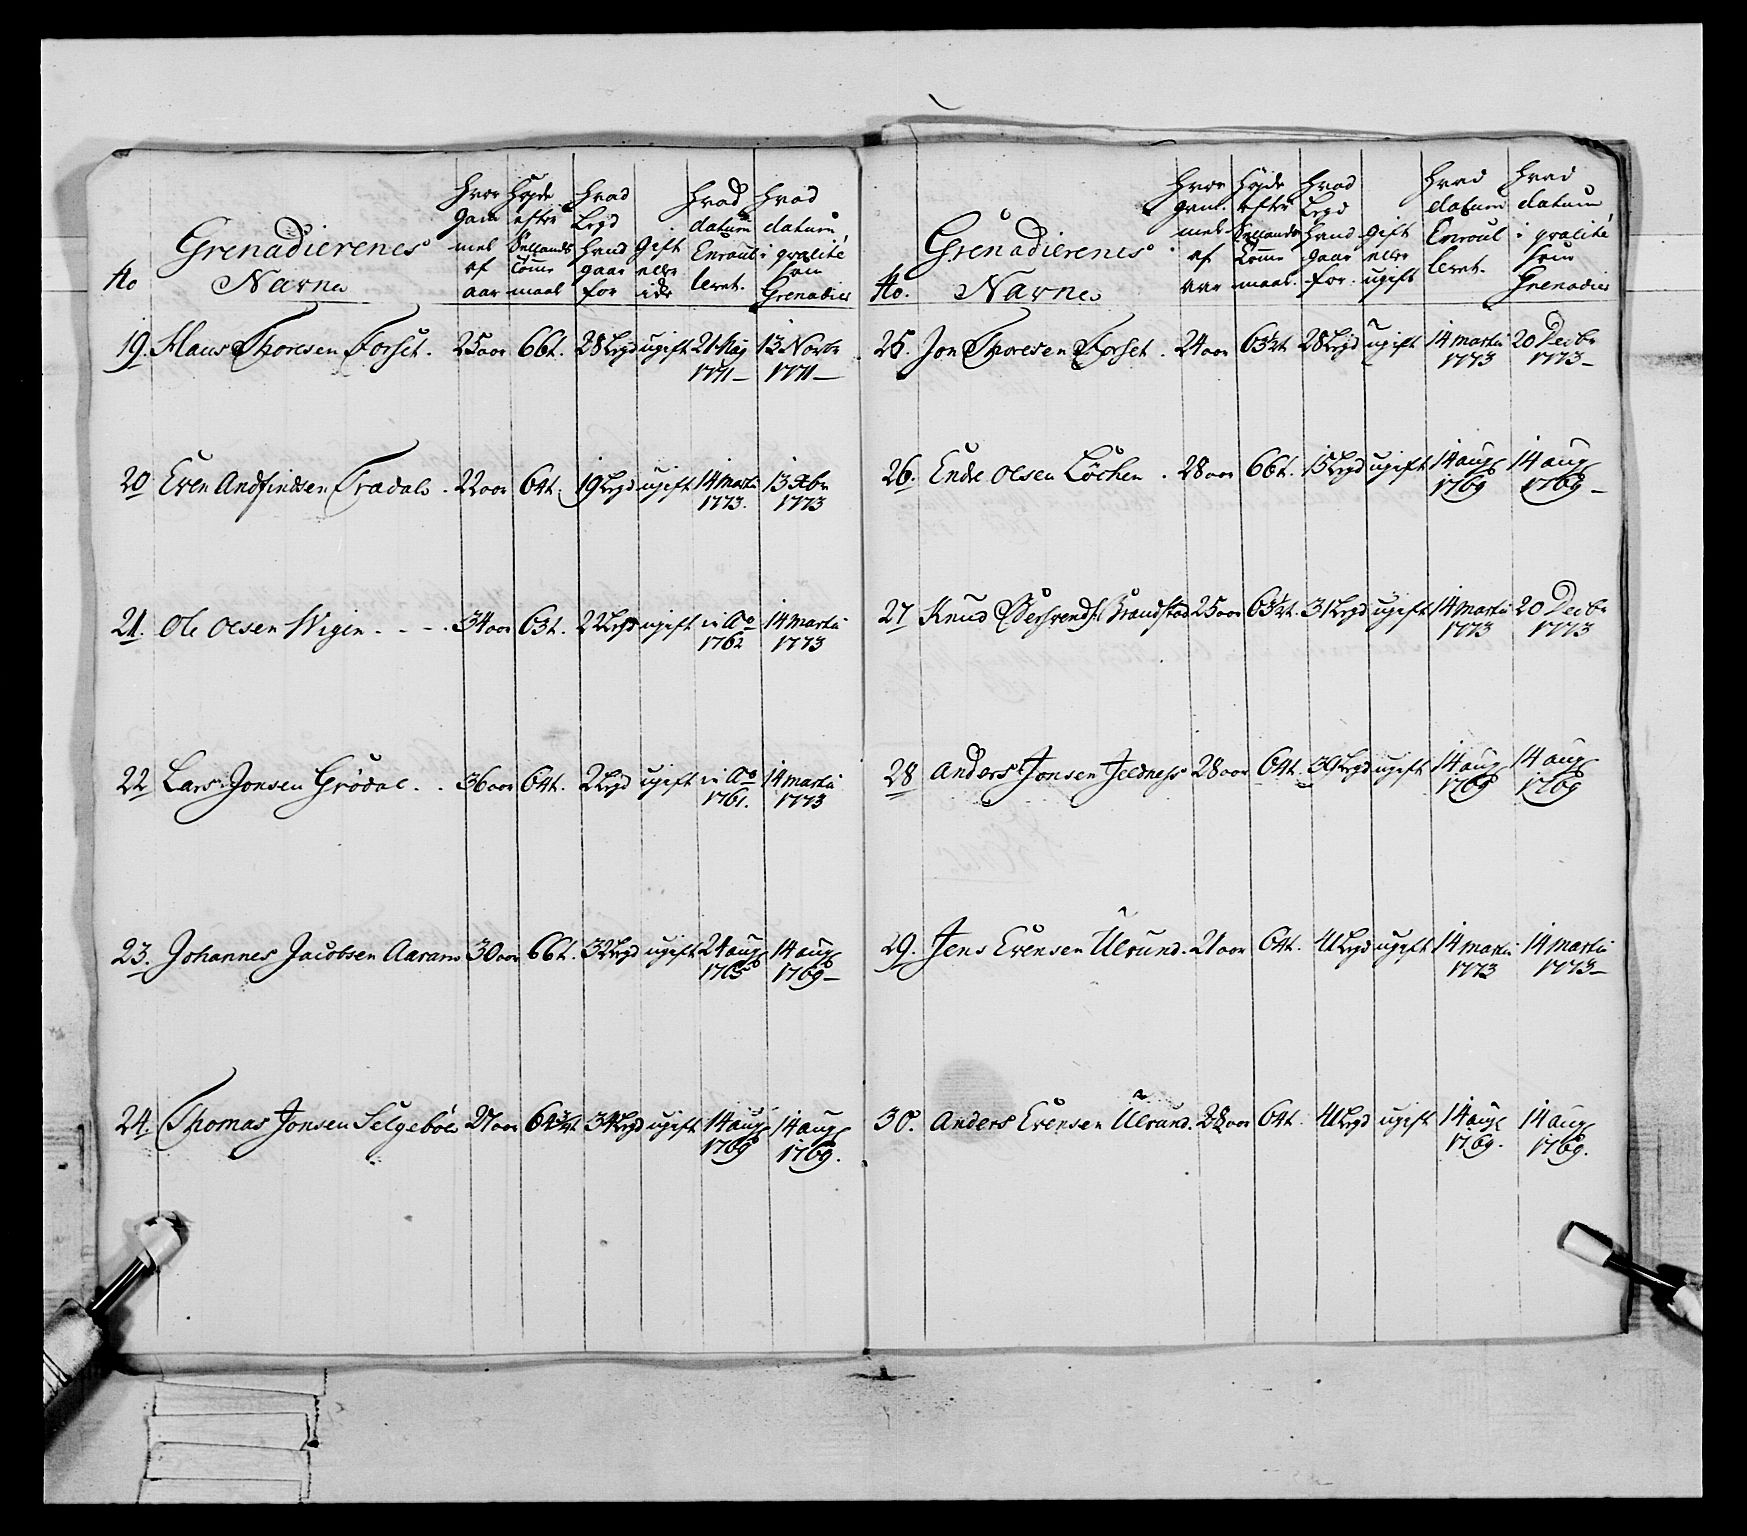 No
Grenadierenes
Navne
Hvor gam mel af aar
Höyde efter Siellands Tomme maal
Hvad Legd hand gaar for
Gift eller ide
Hvad datum Enroul leret.
Hvad datum, i qvalité som Grenadier
19. Hans Thoresen Forset. 25 aar 66t. 28 Legd ugift 21 Maj 1771 13 Novbr 1771
20 Even Andfindsen Tradals. 22 aar 64t. 19 Legd ugift 14 Marti 1773. 13 Xbr 1773
21. Ole Olsen Wigen 34 aar 63t. 22 Legd ugift in Ao 1762 14 Martii 1773
22 Lars Jonsen Grödal 36 aar 64t. 2 Legd ugift in Ao 1761. 14 Martii 1773
23. Johannes Jacobsen Aaram 30 aar 66t. 32 Legd ugift 24 aug 1765 14 aug 1769
24. Thomas Jonsen Selgeböe 27 aar 34 Legd ugift 14 aug 1769 14 aug 1769.
No.
Grenadierenes
Navne
Hvor gam mel af aar
Höyde efter Siellands Tomme maal.
Hvad Legd hand gaar for.
gift eller ugift
Hvad datum Enroul leret.
Hvad datum, i qvalité som Grenadier
25. Jon Thoresen Forset. 24 aar 28 Legd ugift 14 Martii 1773 20 Decbr 1773
26. Ende Olsen Löchen. 28 aar 66t. 15 Legd ugift 14 aug 1769 14 aug 1769
27 Knud Brandstad 25 aar 31 Legd ugift 14 Martii 1773 20 Decbr 1773
28 Anders Jonsen Jeldness 28 aar 64t. 39 Legd ugift 14 aug 1769 14 aug 1769
29. Jens Evensen Ulvund. 21 aar 64t. 41 Legd ugift 14 Martii 1773 14 Martii 1773
30. Anders Evensen Ulvund. 28 aar 64t. 41 Legd ugift 14 aug 1769. 14 aug 1769.